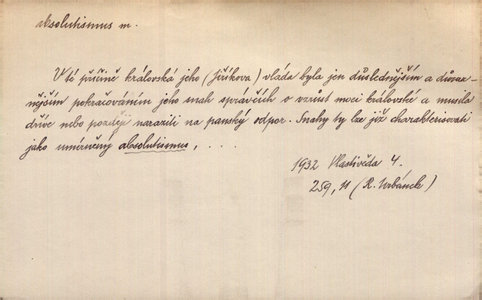 absolutismus m.
V té příčině královská jeho (Jiříkova) vláda byla jen důslednějším a důraz-
nějším pokračováním jeho snah správčích o vzrůst moci královské a musila
dříve nebo později naraziti na panský odpor. Snahy ty lze již charakterisovati
jako umírněný absolutismus, . . . .
1932 Vlastivěda 4.
259, U (R. Urbánek)